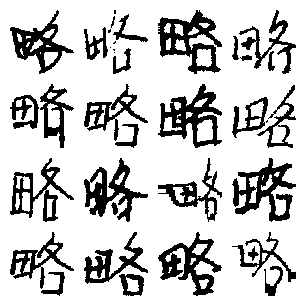 略略略略
略略略略
略略略略
略略略略